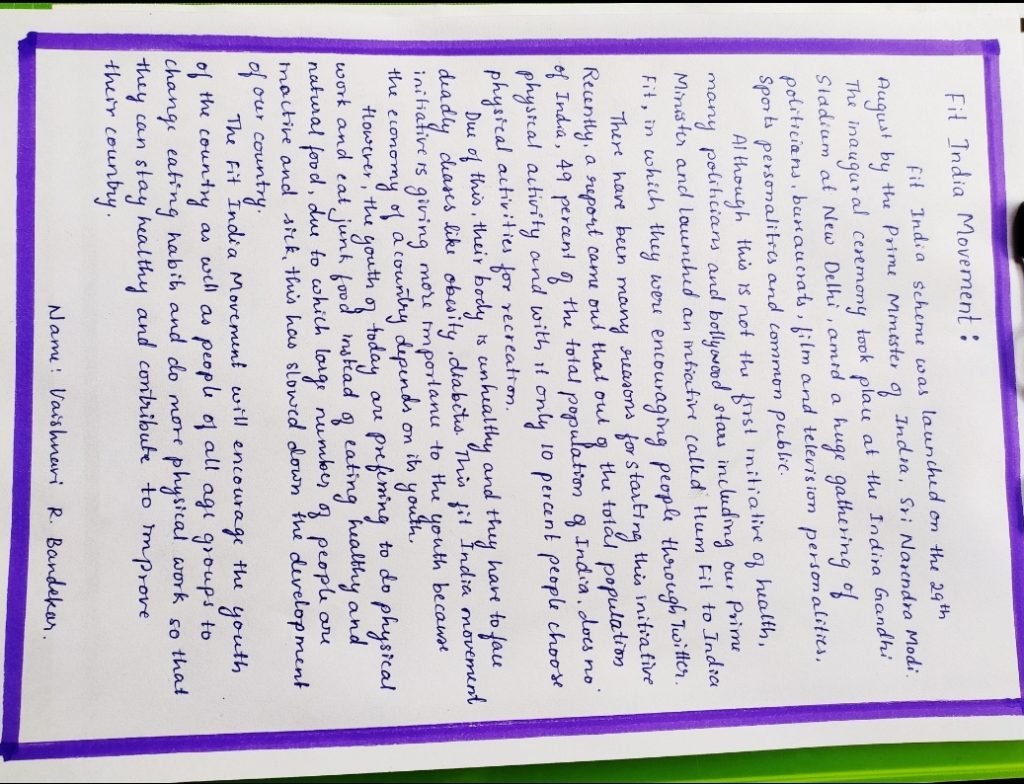 Fit India Movement :
Fit India scheme was launched on the 29th
August by the Prime Minister of India, Sri Narendra Modi.
The inaugural ceremony took place at the Indira Gandhi
Stadium at New Delhi, amid a huge gathering of
politicians, bureaucrats, film and television personalities,
Spots personalities and common public.
Although this is not the first initiative of health,
many politicians and bollywood stars including our Prime
Minister and launched an intiative called Hum Fit to India
Fit, in which they were encouraging people through Twitter.
There have been many reasons for starting this initiative
Recently, a report came out that out of the total population
of India, 49 percent of the total population of India, does no
physical activity and with it only 10 percent people choose
physical activities for recreation.
Due of this, their body is unhealthy and they have to face
deadly diases like obesity, diabits. This fit India movement
initiative is giving more importance to the youth because
the economy of a country depends on its youth.
However, the youth of today are preferring to do physical
work and eat junk food instead of eating healthy and
natural food, due to which large number of people are
inactive and sick, this has slowed down the development
of our country.
The Fit India Movement will encourage the youth
of the country as well as people of all age groups to
change eating habits and do more physical work so that
they can stay healthy and contribute to improve
their country.
Name: Vaishnavi R. Bandekar.